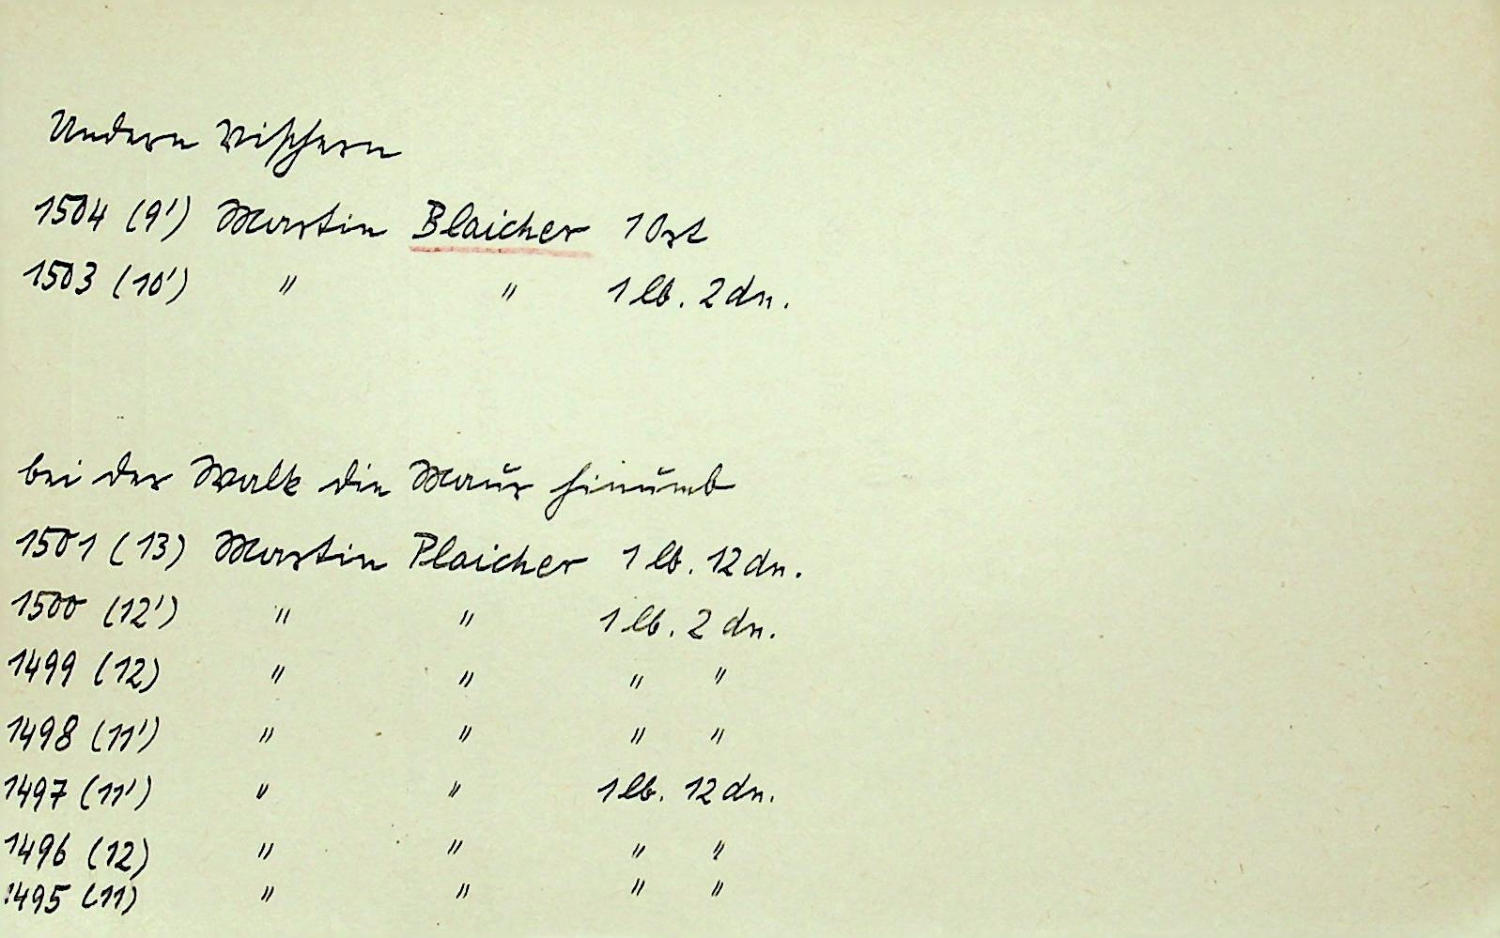 Undern Vischern
1504 (9') Martin Blaicher 1 Ort
1503 (10') " " 1 lb. 2 dn.
bei der Walk die Maur hinumb
1501 (13) Martin Plaicher 1 lb. 12 dn.
1500 (12') " " 1 lb. 2 dn.
1499 (12) " " " "
1498 (11') " " " "
1497 (11') " " 1 lb. 12 dn.
1496 (12) " " " "
1495 (11) " " " "